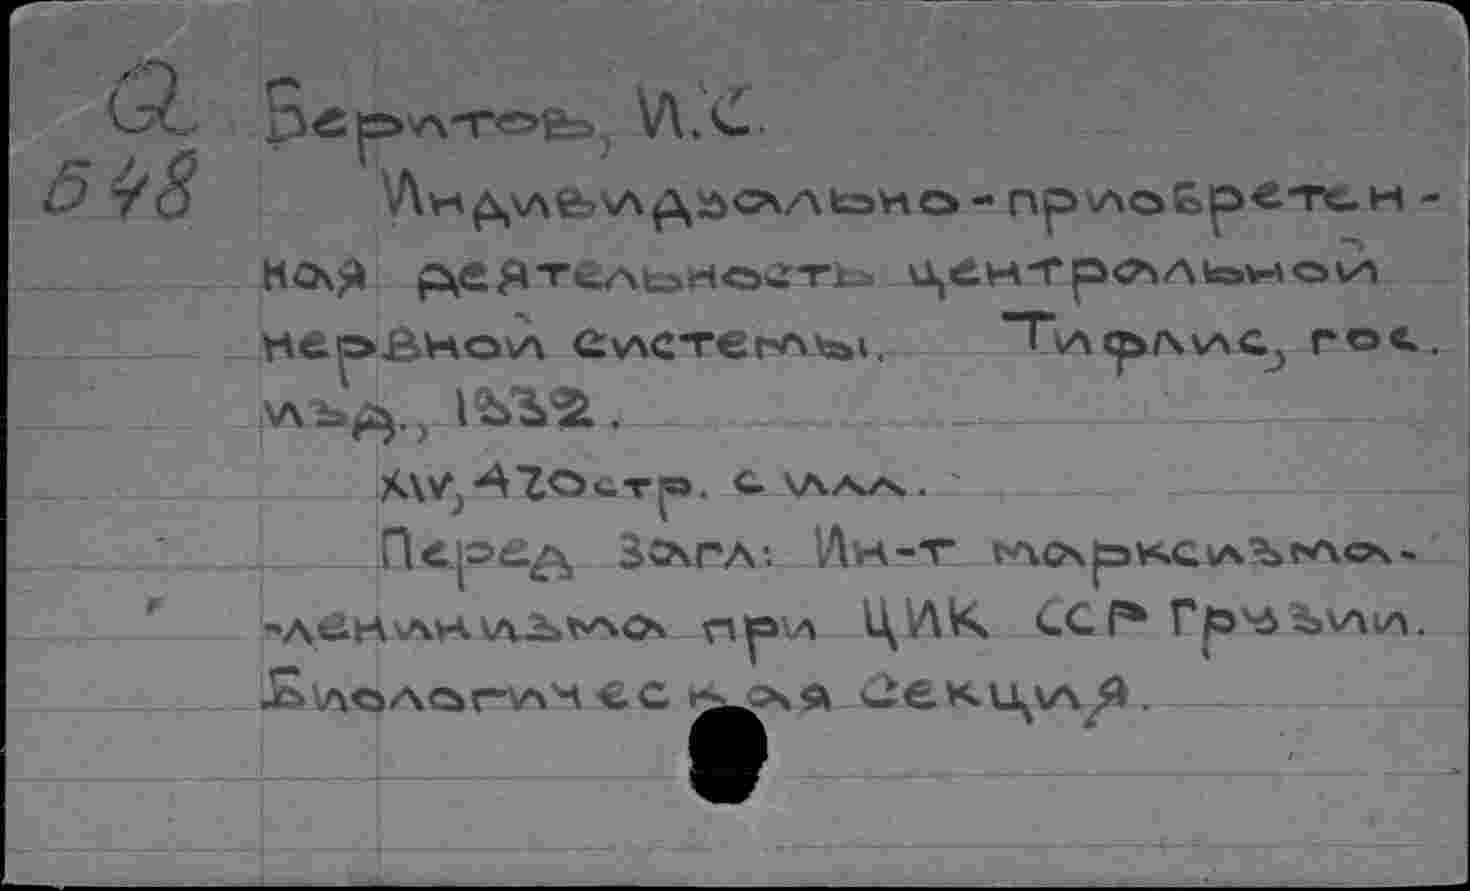 Беритов, И.С.
548
Индивидуально-приобретен-
ная деятельность центральной
нервной системы. Тифлис, гос.
изд., 1932.
XIV, 470 стр. с илл.
Перед загл: Ин-т марксизма-
-ленинизма при ЦИК ССР Грузии.
Биологическая секция.